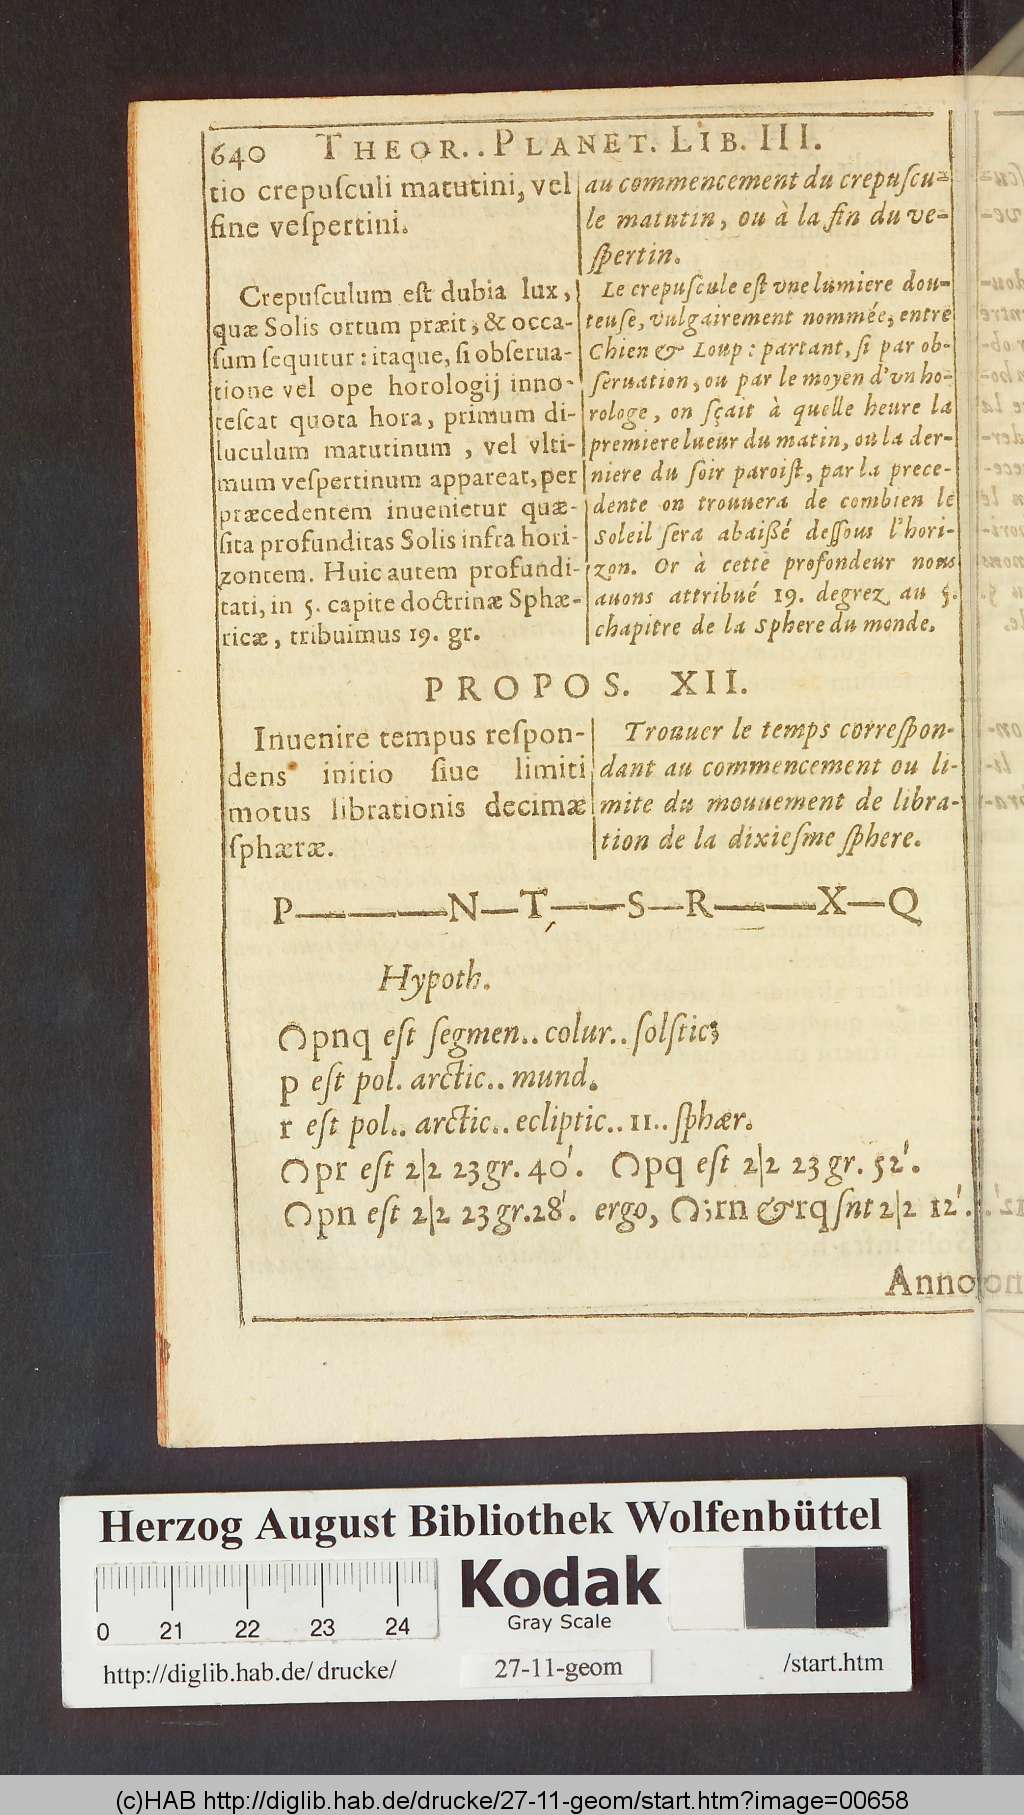 640 THEOR.. PLANET. LIB. III.
tio crepuſculi matutini, vel
fine veſpertini.
Crepuſculum eſt dubia lux,
quæ Solis ortum præit, & occa-
ſum ſequitur: itaque, ſi obſerua-
tione vel ope horologij inno-
teſcat quota hora, primum di-
luculum matutinum, vel vlti-
mum veſpertinum appareat, per
præcedentem inuenietur quæ-
ſita profunditas Solis infra hori-
zontem. Huic autem profundi-
tati, in 5. capite doctrinæ Sphæ-
ricæ, tribuimus 19. gr.
au commencement du crepuſcu-
le matutin, ou à la fin du ve-
ſpertin.
Le crepuſcule eſt vne lumiere dou-
teuſe, vulgairement nommée, entre
Chien & Loup: partant, ſi par ob-
ſeruation, ou par le moyen d'vn ho-
rologe, on ſçait à quelle heure la
premiere lueur du matin, ou la der-
niere du ſoir paroiſt, par la prece-
dente on trouuera de combien le
Soleil ſera abaißé deſſous l'hori-
zon. Or à cette profondeur nous
auons attribué 19. degrez au 5.
chapitre de la Sphere du monde.
PROPOS. XII.
Inuenire tempus reſpon-
dens initio ſiue limiti
motus librationis decimæ
ſphæræ.
Trouuer le temps correſpon-
dant au commencement ou li-
mite du mouuement de libra-
tion de la dixieſme ſphere.
P———N—T——S—R——X—Q
Hypoth.
⌒pnq eſt ſegmen.. colur.. ſolſtic;
p eſt pol. arctic.. mund.
r eſt pol.. arctic.. ecliptic.. 11.. ſphær.
⌒pr eſt 2|2 23 gr. 40'. ⌒pq eſt 2|2 23 gr. 52'.
⌒pn eſt 2|2 23 gr. 28'. ergo, ⌒;rn & rq ſnt 2|2 12'.
Anno
Herzog August Bibliothek Wolfenbüttel
Kodak
Gray Scale
0 21 22 23 24
http://diglib.hab.de/drucke/ 27-11-geom /start.htm
(c)HAB http://diglib.hab.de/drucke/27-11-geom/start.htm?image=00658